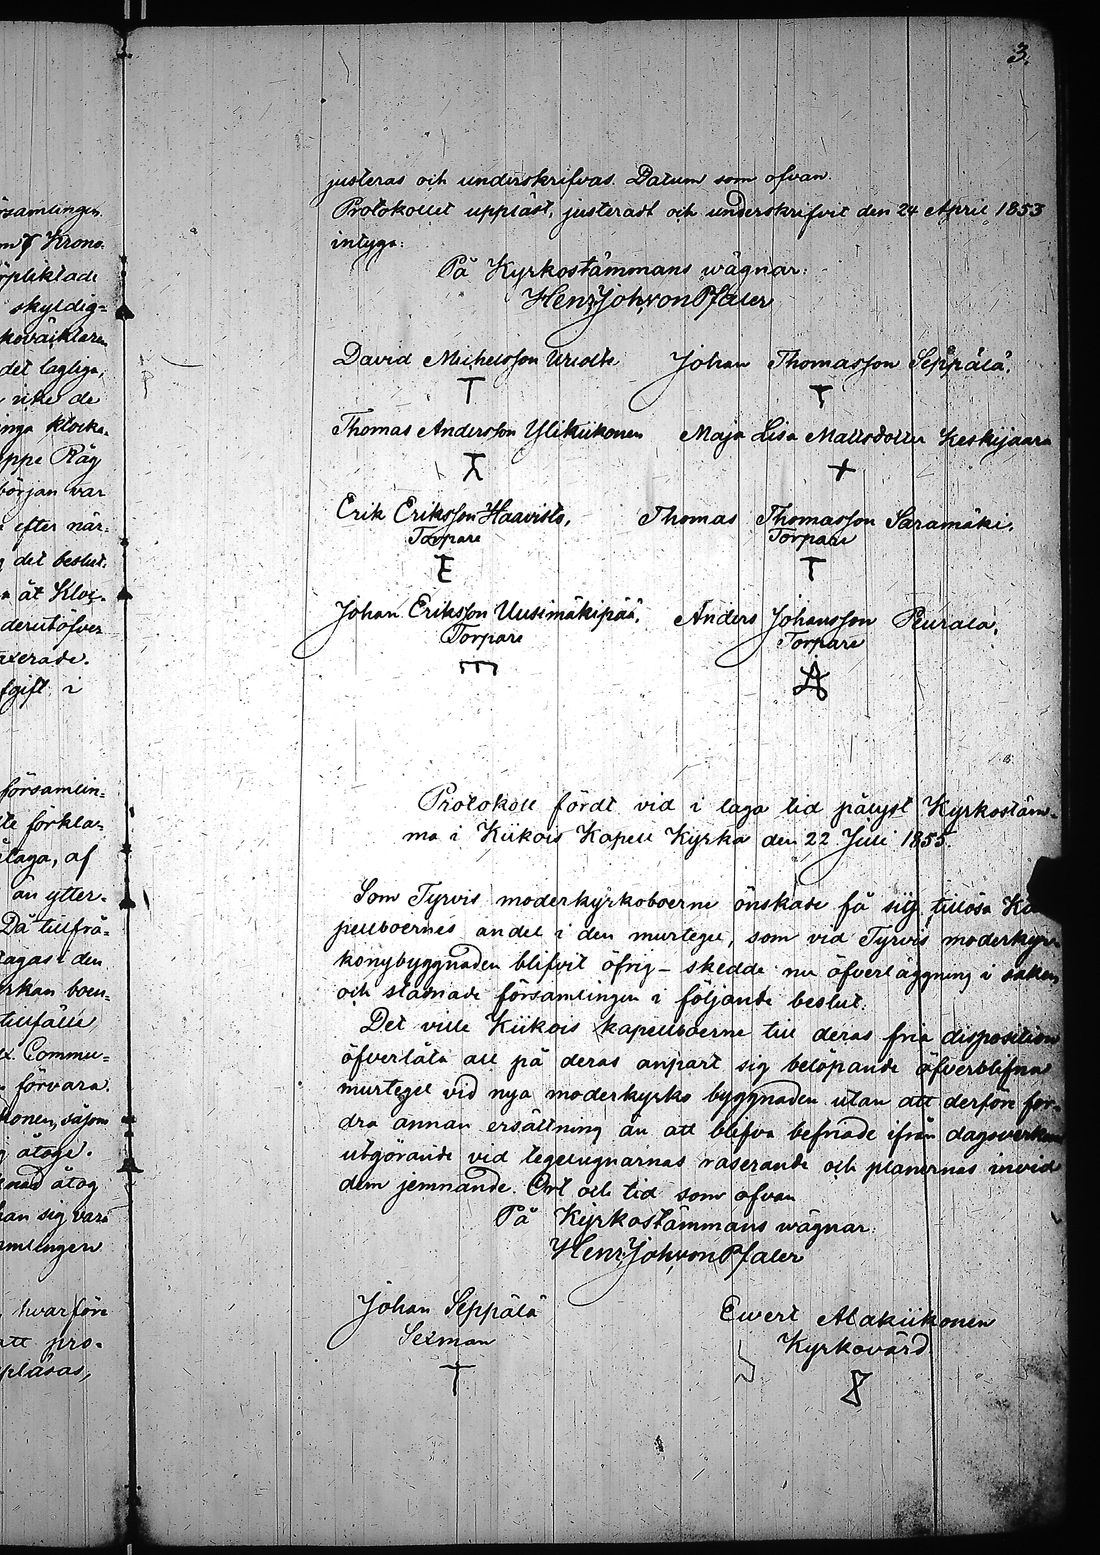 3.
justeras och underskrifvas. Datum som ofvan.
Protokollet uppläst, justeradt och underskrifvit den 24 April 1853
intyga:
På Kyrkostämmans wägnar:
Henr. Joh. von Pfaler
David Michelsson
Johan Thomasson Seppälä.
T
T
Thomas Andersson Ylikiikonen
Maja Lisa Mattsdotter Keskijaara
+
Erik Eriksson Haavisto,
Thomas Thomasson Saramäki,
Torpare
Torpare
E
T
Johan Eriksson Uusimäkipää,
Anders Johansson Peurala,
Torpare
Torpare
Protokoll fördt vid i laga tid pålyst Kyrkostäm-
ma i Kiikois Kapell Kyrka den 22 Juli 1855.
Som Tyrvis moderkyrkoboerne önskade få sig tillösa
pellboernes andel i den murtegel, som vid Tyrvis moderkyr-
konybyggnaden blifvit öfrig – skedde nu öfverläggning i saken,
och stannade församlingen i följande beslut.
Det ville Kiikois kapellboerne till deras fria disposition
öfverlåta all på deras anpart sig belöpande öfverblifna
murtegel vid nya moderkyrko byggnaden utan att derföre for-
dra annan ersättning än att blifva befriade ifrån dagsverkens
utgörande vid tegelugnarnas raserande och planernas invid
dem jemnande. Ort och tid som ofvan
På Kyrkostämmans wägnar:
Henr. Joh. von Pfaler
Johan Seppälä
Ewert Alakiikonen
Sexman
Kyrkovärd
T
rsamlingen
Krono-
rpliktade
skyldig=
det lagliga,
de
inga klocka-
ppe Råg
början var
efter när-
det beslut.
åt Kloc-
derutöfver
axerade.
fgift i
församlin=
te förkla-
laga, af
än ytter-
Då tillfrå-
tagas i den
rkan boen-
tillfälle
Commu=
förvara
ionen, såsom
åtage.
nad åtog
an sig vara
mlingen
hvarföre
att pro-
pläsas,